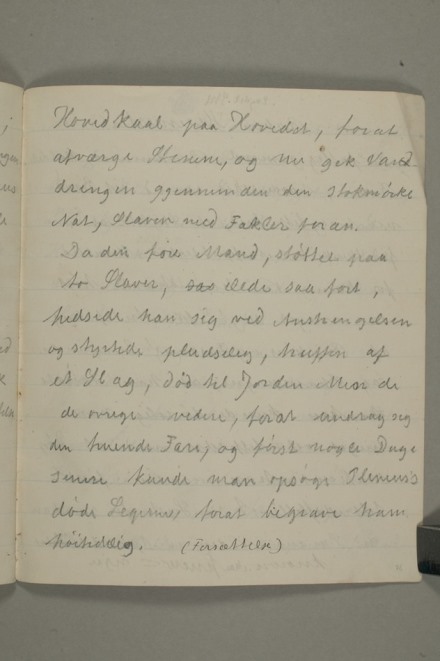 Hovedkaal paa Hovedst, forat
afværge Stenene, og nu gik Vand-
dringen gjennem den den stokmørke
Nat, Slaven med Fakler foran.
Da den føre Mand, støttet paa
to Slaver, ilede saa fort,
hedsede han sig ved Anstrengelsen
og styrtede pludselig, truffen af
et Slag, død til Jorden Men de
de øvrige videre, forat unddrag sig
den truende Fare, og først nogle Dage
senere kunde man opsøge Plenius's
døde Legeme, forat begrave ham
høitidelig. (Forsættelse)